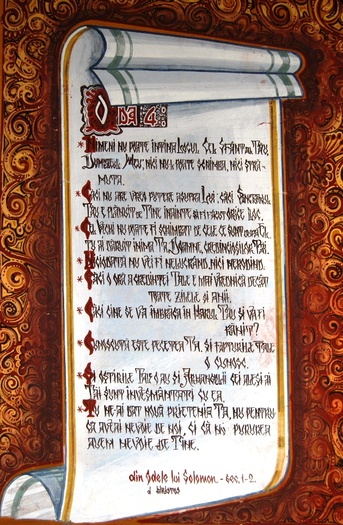 Oda 4
Nimeni nu poate întina locul Cel Sfânt al Tău,
Dumnezeul Meu; nici nu-l poate schimba, nici stră-
muta.
Căci nu are vrea putere asupra Lui: căci Sanctuarul
Tău e plănuit de Tine înainte să fi făcut orice loc.
Cel Vechi nu poate fi schimbat de cele ce sunt după El.
Tu ai dăruit inima Ta, Doamne, credincioșilor Tăi.
Niciodată nu vei fi nelucrând, nici nerodind.
Căci o oră a credinței Tale e mai vrednică decât
toate zilele și anii.
Căci cine se va îmbrăca în Harul Tău și va fi
rănit?
Cunoscută este pecetea Ta, și făpturile Tale
o cunosc.
Și oștirile Tale o au și Arhanghelii cei aleși ai
Tăi sunt înveșmântați cu ea.
Tu ne-ai dat nouă prietenia Ta, nu pentru
că aveai nevoie de noi, ci că noi pururea
avem nevoie de Tine.
din Odele lui Solomon - sec. 1-2.